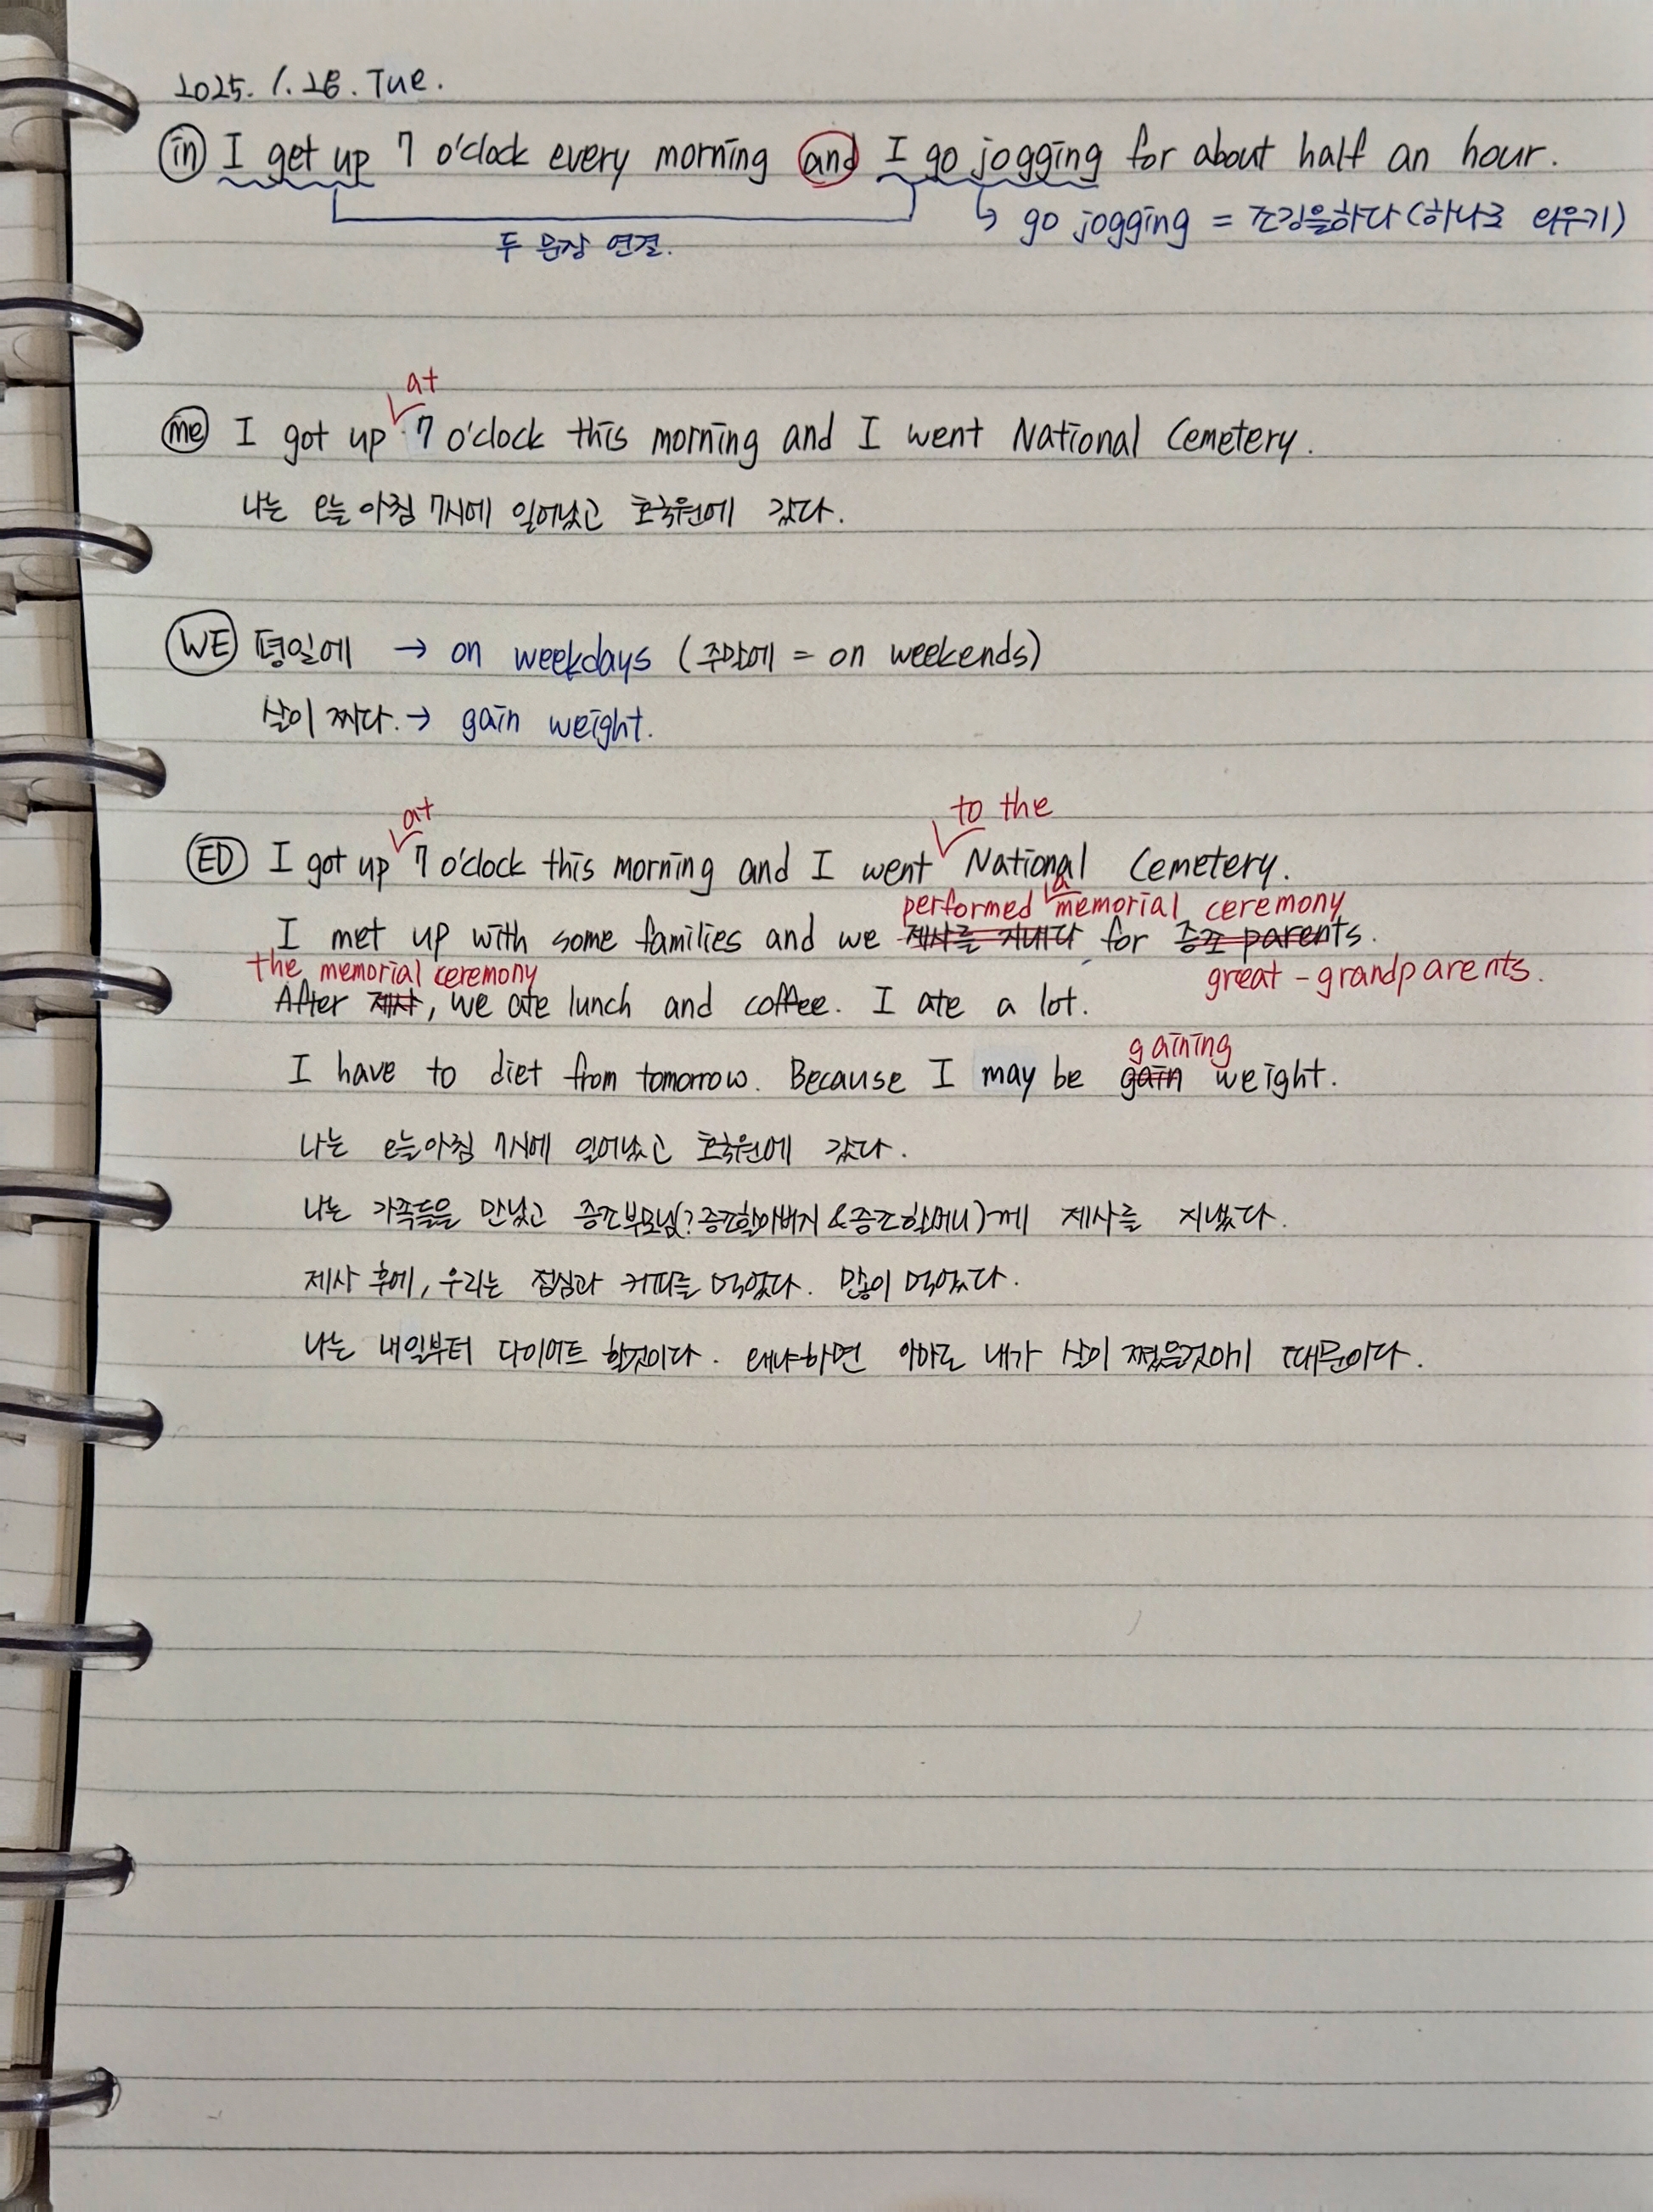 2025. 1. 28. Tue.
in I get up 7 o'clock every morning and I go jogging for about half an hour.
go jogging = 조깅을하다 (하나로 외우기)
두 문장 연결.
at
me I got up 7 o'clock this morning and I went National Cemetery.
나는 오늘 아침 7시에 일어났고 호국원에 갔다.
WE 평일에 → on weekdays (주말에 = on weekends)
살이 찌다. → gain weight.
at to the
ED I got up 7 o'clock this morning and I went National Cemetery.
performed a memorial ceremony
I met up with some families and we 제사를 지내다 for 증조 parents.
the memorial ceremony great-grandparents.
After 제사, we ate lunch and coffee. I ate a lot.
gaining
I have to diet from tomorrow. Because I may be gain weight.
나는 오늘아침 7시에 일어났고 호국원에 갔다.
나는 가족들을 만났고 증조부모님(?증조할아버지&증조할머니)께 제사를 지냈다.
제사 후에, 우리는 점심과 커피를 먹었다. 많이 먹었다.
나는 내일부터 다이어트 할것이다. 왜냐하면 아마도 내가 살이 쪘을것이기 때문이다.